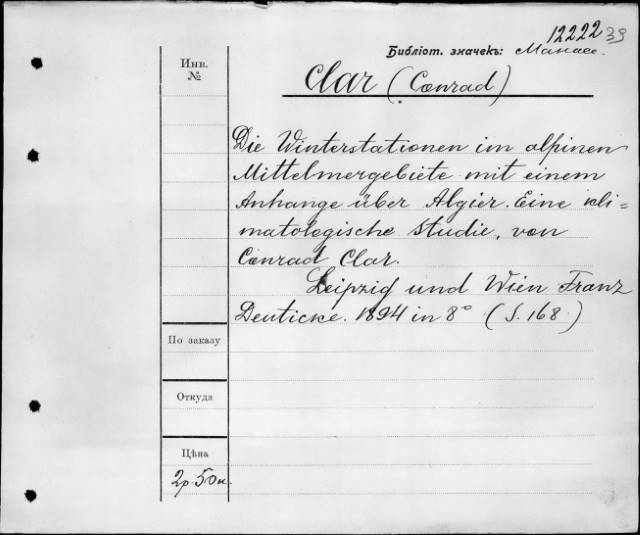 12222 39
Библіот. значекъ: Манасе.
Инв.
№
Clar (Conrad)
Die Winterstationen im alpinen
Mittelmergebiete mit einem
Anhange über Algier. Eine kli=
matologische Studie, von
Conrad Clar.
Leipzig und Wien Franz
Deuticke. 1894 in 8° (S. 168.)
По заказу
Откуда
Цѣна
2р. 50к.